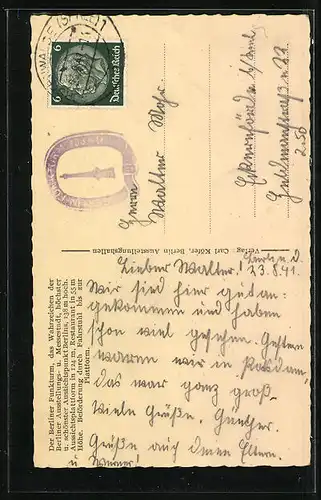 6 Deutsches Reich 6
Herrn
Walter Mohr
Eckernförde
Verlag: Carl Köfer, Berlin Ausstellungshallen
Der Berliner Funkturm, das Wahrzeichen der
Berliner Ausstellungs- u. Messestadt, höchster
u. schönster Aussichtspunkt Berlins, 138 m hoch.
Aussichtsplattform in 124 m. Restaurant in 55 m
Höhe. Beförderung durch Fahrstuhl bis zur
Plattform.
Berlin d.
23.8.41.
Lieber Walter!
Wir sind hier gut an-
gekommen und haben
schon viel gesehen. Gestern
waren wir in Potsdam,
das war ganz groß.
Viele Grüße. Günther.
Grüße auch deine Eltern.
u. Werner!